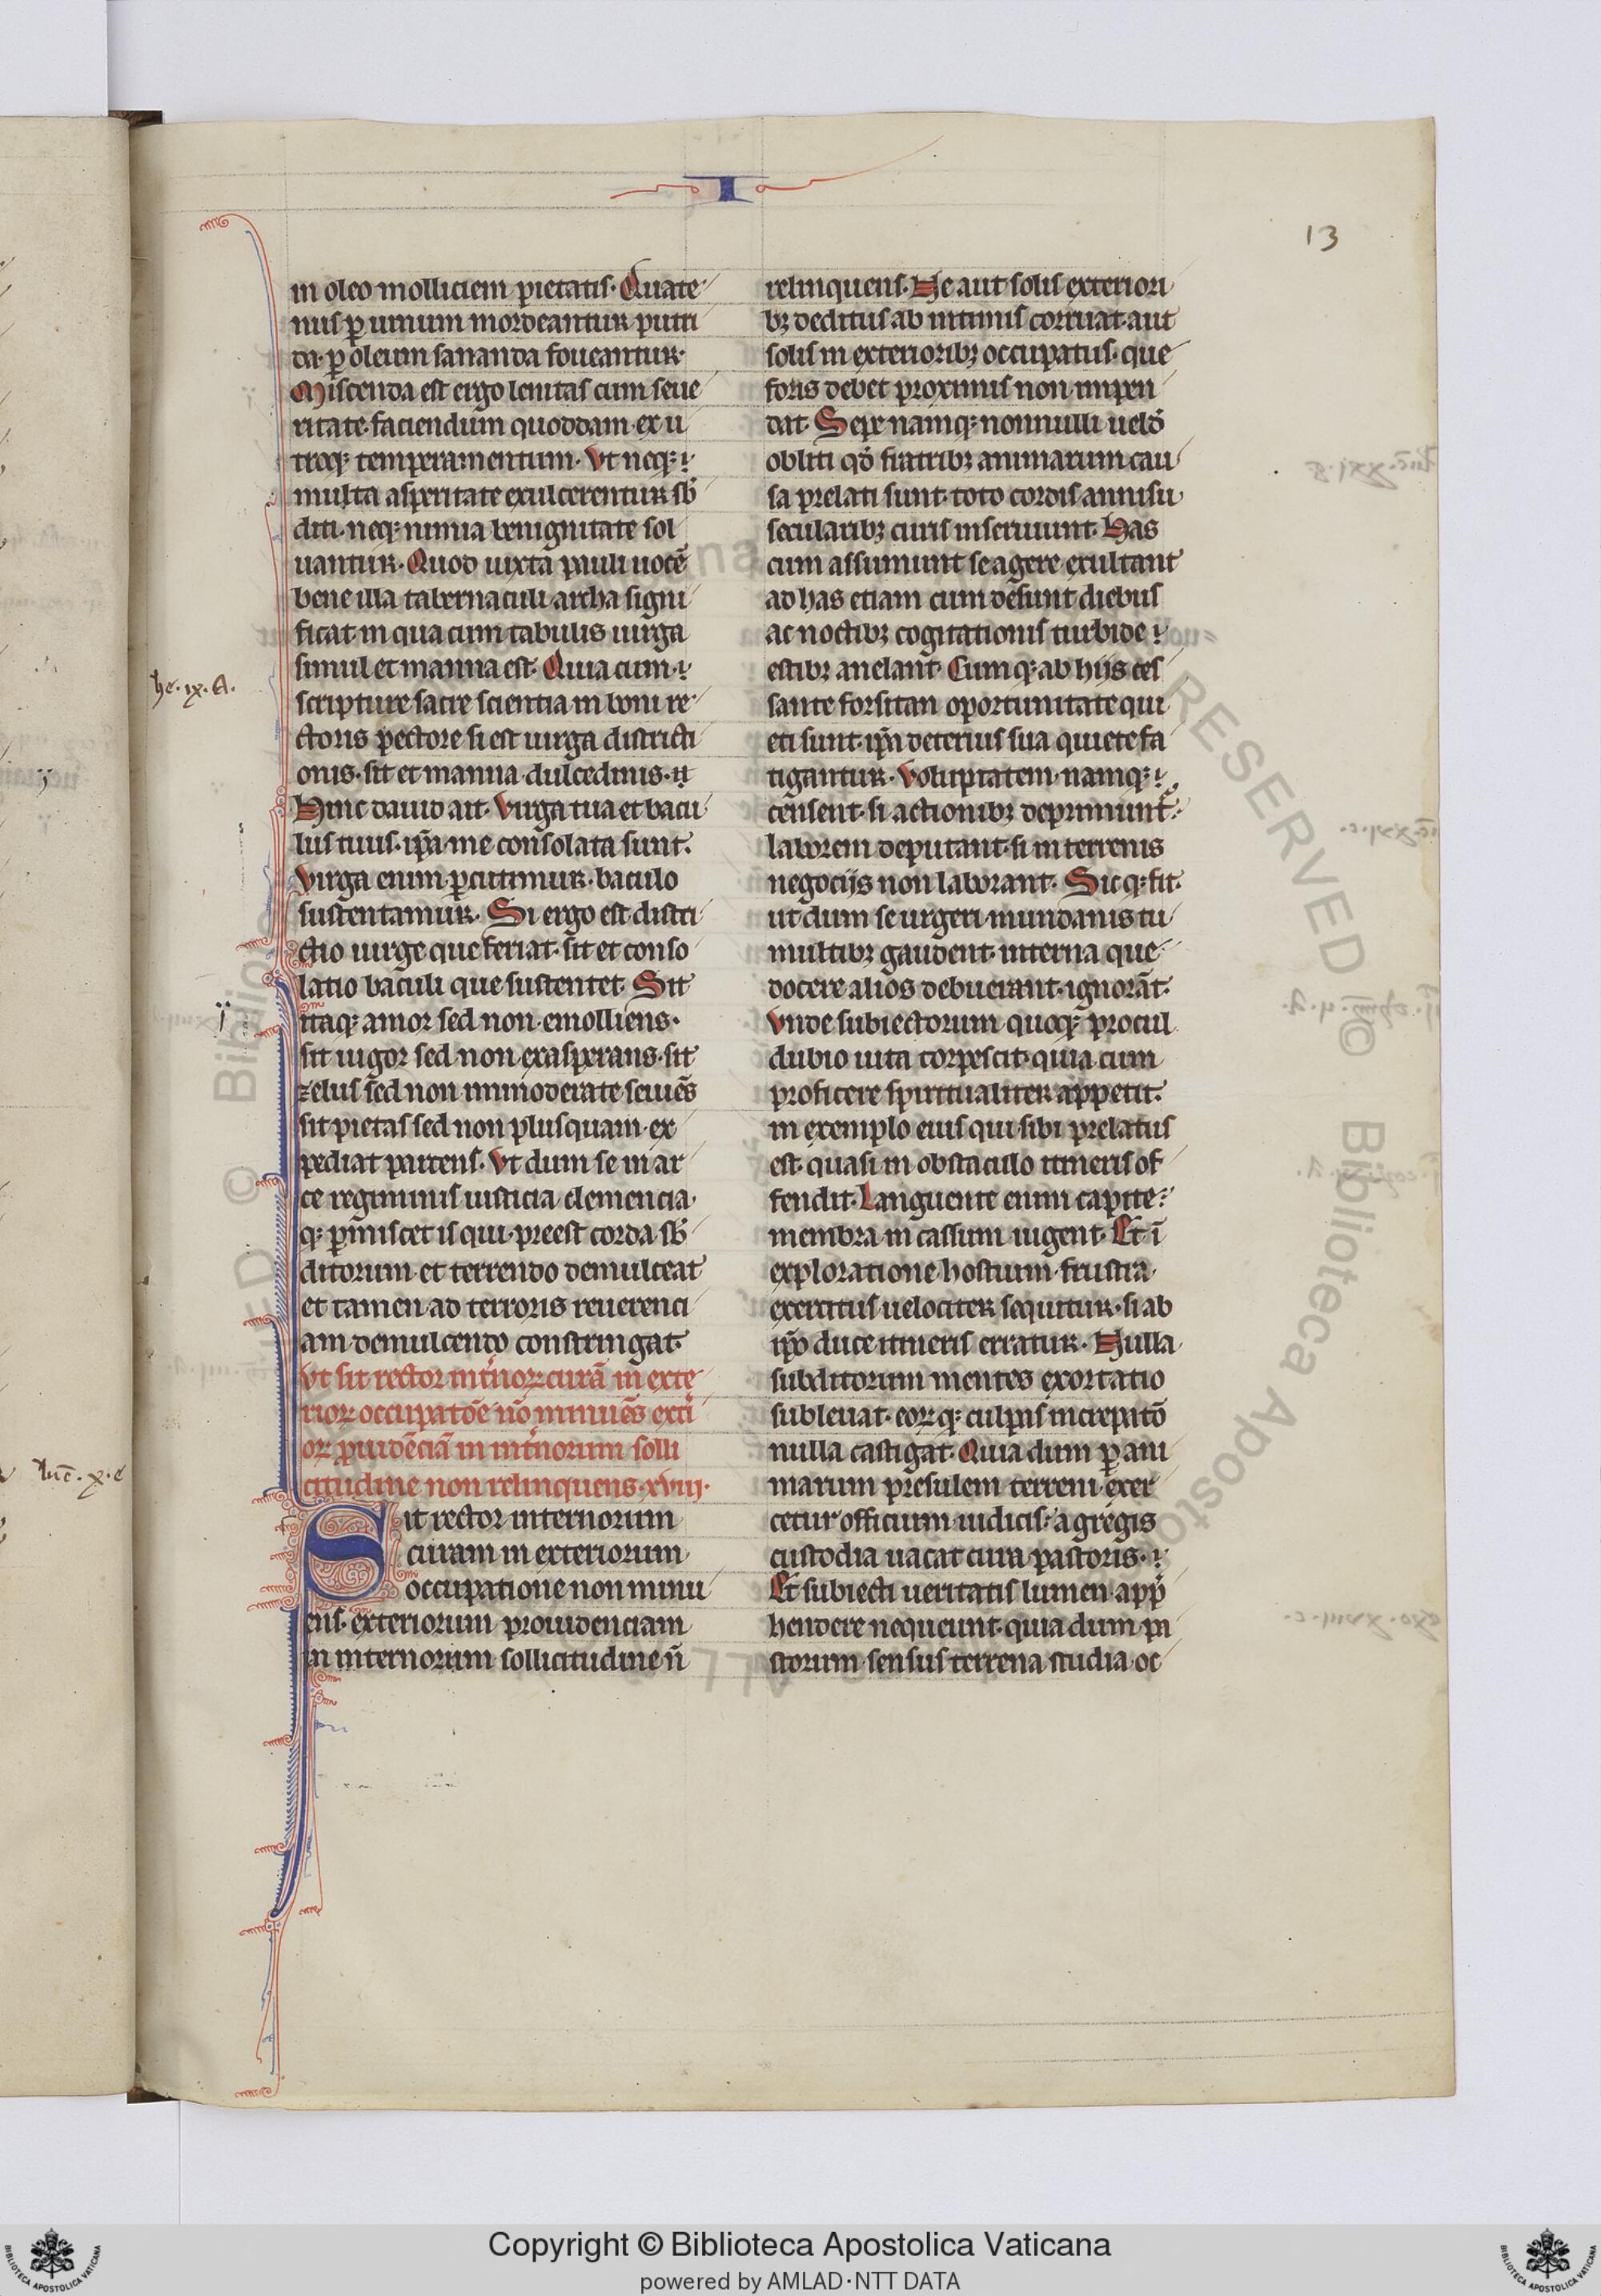 I
13
in oleo molliciem pietatis. Quate
nus ꝑ uinum mordeantur putri
da. ꝑ oleum sananda foueantur.
Miscenda est ergo lenitas cum seue
ritate. faciendum quoddam ex u
troqꝫ temperamentum. Vt neqꝫ
multa asperitate exulcerentur sb̄
diti. neqꝫ nimia benignitate sol
uantur. Quod iuxta pauli uocē
bene illa tabernaculi archa signi
ficat in qua cum tabulis uirga
simul et manna est. Quia cum
scripture sacre scientia in boni re
ctoris pectore si est uirga districti
onis. sit et manna dulcedinis.
Hinc dauid ait. Virga tua et bacu
lus tuus. ip̄a me consolata sunt.
Virga enim ꝑcutimur. baculo
sustentamur. Si ergo est distri
ctio uirge que feriat. sit et conso
latio baculi que sustentet. Sit
itaqꝫ amor sed non emolliens.
sit uigor sed non exasperans. sit
zelus sed non immoderate seuiēs
sit pietas sed non plusquam ex
pediat parcens. Vt dum se in ar
ce regiminis iusticia clemencia
qꝫ ꝑmiscet is qui preest corda sb̄
ditorum et terrendo demulceat
et tamen ad terroris reuerenci
am demulcendo constringat.
Vt sit rector int̾noꝝ curā in exte
rioꝝ occupatōe nō minuēs ext̾i
oꝝ ꝓuidēciā in int̾norum solli
citudine non relinquens. xviij.
Sit rector internorum
curam in exteriorum
occupatione non minu
ens. exteriorum prouidenciam
in internorum sollicitudine n̄
he. ix. A.
luc̄. x. e
relinquens. Ne aut solis exteriori
bꝫ deditus ab intimis corruat. aut
solis in exterioribꝫ occupatus. que
foris debet proximis non impen
dat. Sepe namqꝫ nonnulli uelud̾
obliti qd̾ fratribꝫ animarum cau
sa prelati sunt. toto cordis annisu
secularibꝫ curis inseruiunt. Has
cum assumunt se agere exultant
ad has etiam cum desunt diebus
ac noctibꝫ cogitationis turbide
estibꝫ anelant. Cumqꝫ ab hijs ces
sante forsitan oportunitate qui
eti sunt. ip̄a deterius sua quiete fa
tigantur. Voluptatem namqꝫ
censent. si actionibꝫ deprimunt̾.
laborem deputant. si in terrenis
negocijs non laborant. Sicqꝫ fit.
ut dum se urgeri mundanis tu
multibꝫ gaudent. interna que
docere alios debuerant. ignorāt.
Vnde subiectorum quoqꝫ procul
dubio uita torpescit. quia cum
proficere spiritualiter appetit.
in exemplo eius qui sibi prelatus
est. quasi in obstaculo itineris of
fendit. Languente enim capite
membra in cassum uigent. Et ī
exploratione hostium frustra
exercitus uelociter sequitur. si ab
ip̄o duce itineris erratur. Nulla
subditorum mentes exortatio
subleuat. eoꝝqꝫ culpas increpatō
nulla castigat. Quia dum ꝑ ani
marum presulem terreni exer
cetur officium iudicis. a gregis
custodia uacat cura pastoris.
Et subiecti ueritatis lumen app̄
hendere nequeunt. quia dum pa
storum sensus terrena studia oc
Copyright © Biblioteca Apostolica Vaticana
powered by AMLAD·NTT DATA